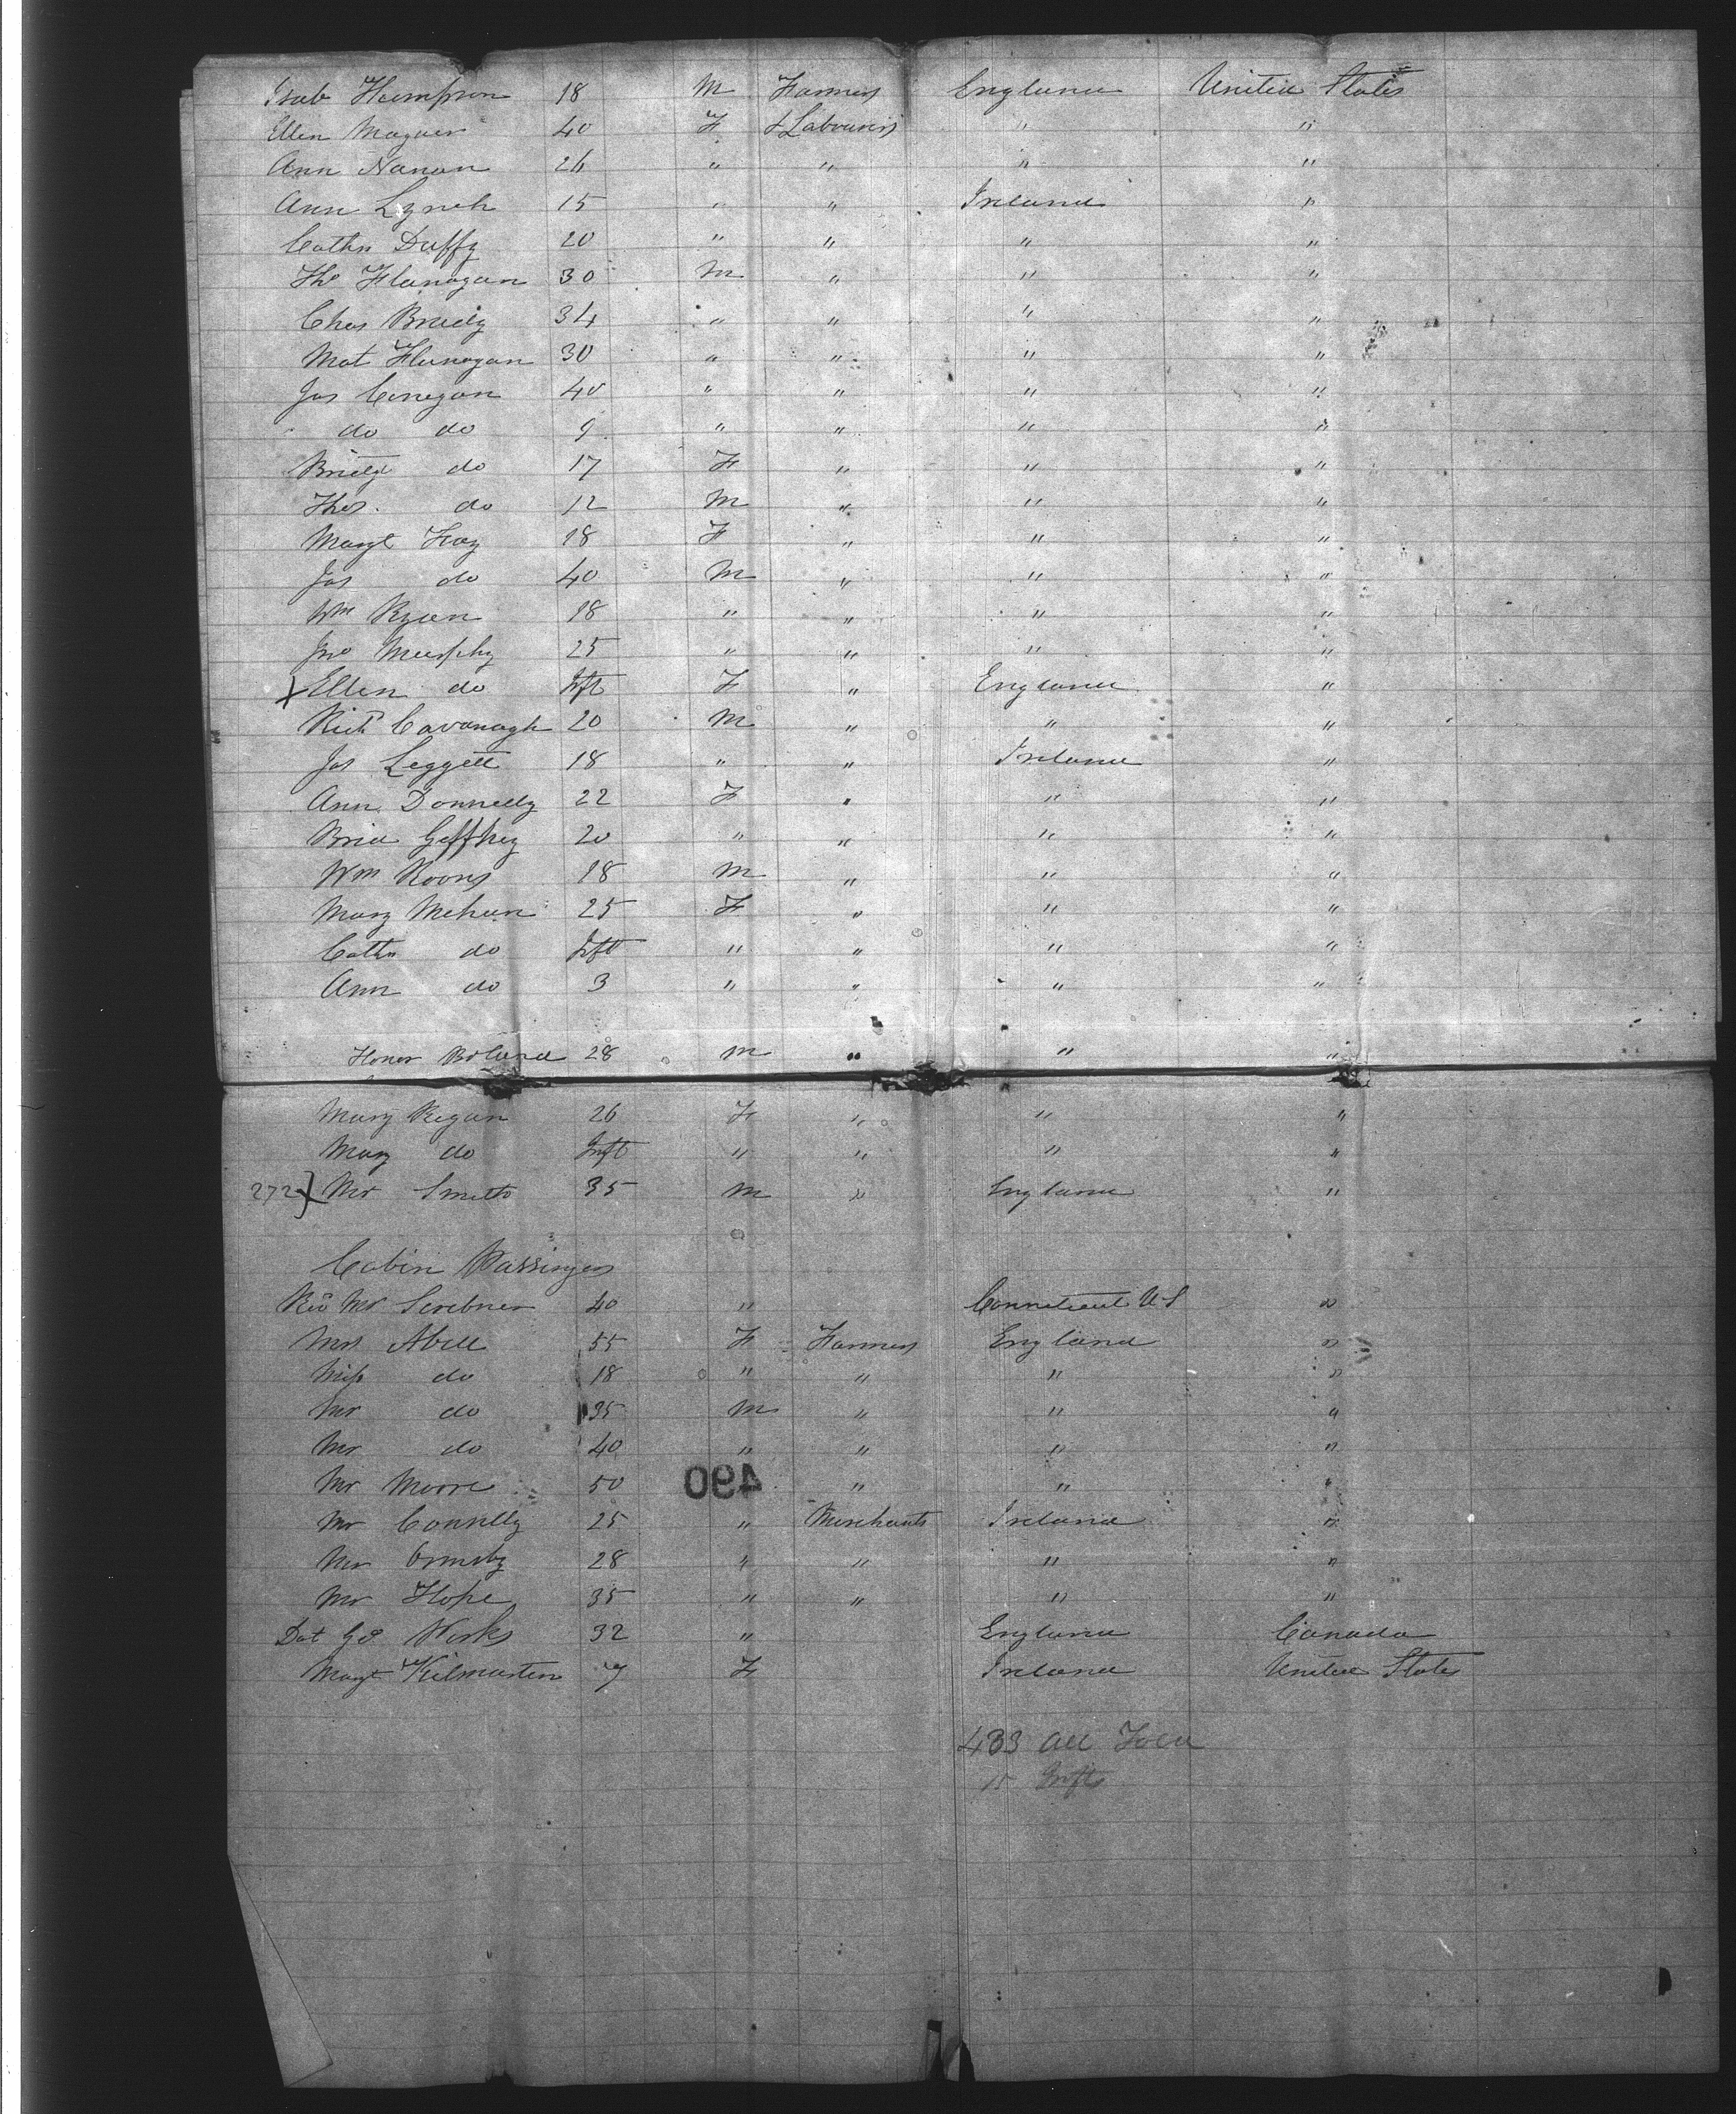 Isab Thompson 18 M Farmers England United States
Ellen Maguer 40 F & Labourers " "
Ann Nanan 26 " " " "
Ann Lynch 15 " " Ireland "
Cathn Duffy 20 " " " "
Tho Flanagan 30 M " " "
Chas Bready 34 " " " "
Mat Flanagan 30 " " " "
Jas Conegan 40 " " " "
do do 9 " " " "
Bridgt do 17 F " " "
Thos. do 12 M " " "
Margt Foy 18 F " " "
Jas do 40 M " " "
Wm Ryan 18 " " " "
Jno Murphy 25 " " " "
Ellen do Inft F " England "
Richd Cavanagh 20 M " " "
Jas Leggett 18 " " Ireland "
Ann Donnelly 22 F " " "
Brid Geffney 20 " " " "
Wm Koons 18 M " " "
Mary Mehan 25 F " " "
Cathn do Inft " " " "
Ann do 3 " " " "
Honor Boland 28 M " " "
Mary Regan 26 F " " "
Mary do Inft " " " "
272 } Mr Smith 35 M " England "
Cabin Passingers
Rev Mr Scribner 40 " Conneticut U S "
Mrs Abell 55 F Farmers England "
Miss do 18 " " " "
Mr do 35 M " " "
Mr do 40 " " " "
Mr Moore 50 " " " "
490
Mr Connelly 25 " Merchants Ireland "
Mr Ormsby 28 " " " "
Mr Hope 35 " " " "
Dot Geo Wirks 32 " England Canada
Margt Kilmartin 7 F Ireland United States
433 All Told
15 Infts